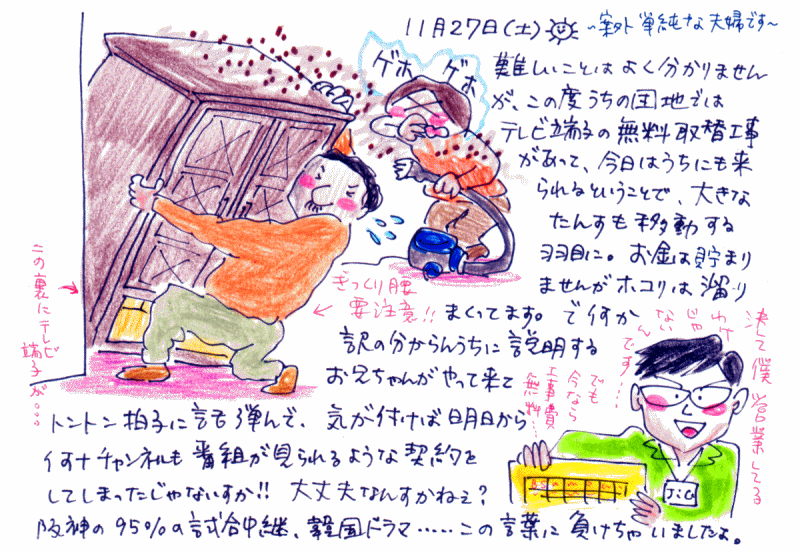 11月27日(土) ~案外単純な夫婦です~
難しいことはよく分かりません
が、この度うちの団地では
テレビ端子の無料取替工事
があって、今日はうちにも来
られるということで、大きな
たんすも移動する
羽目に。お金は貯まり
ませんがホコリは溜り
まくってます。で何か
訳の分からんうちに説明する
お兄ちゃんがやって来て
トントン拍子に話弾んで、気が付けば明日から
何十チャンネルも番組が見られるような契約を
してしまったじゃないすか!! 大丈夫なんすかねぇ?
阪神の95%の試合中継、韓国ドラマ……この言葉に負けちゃいましたよ。
ゲホ
ゲホ
この裏にテレビ
端子が。。。
ぎっくり腰
要注意!!
決して僕営業してる
わけじゃ
ないんです…
でも
今なら
工事費
無料…
J:COM